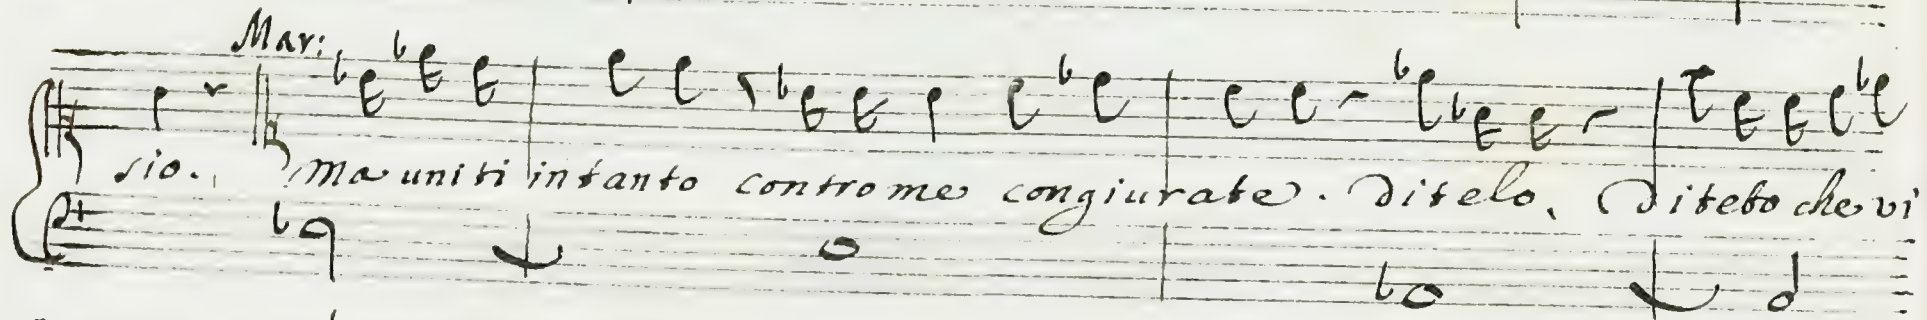 Mar:
sio. Ma uniti intanto contro me congiurate. Ditelo, Ditelo che vi